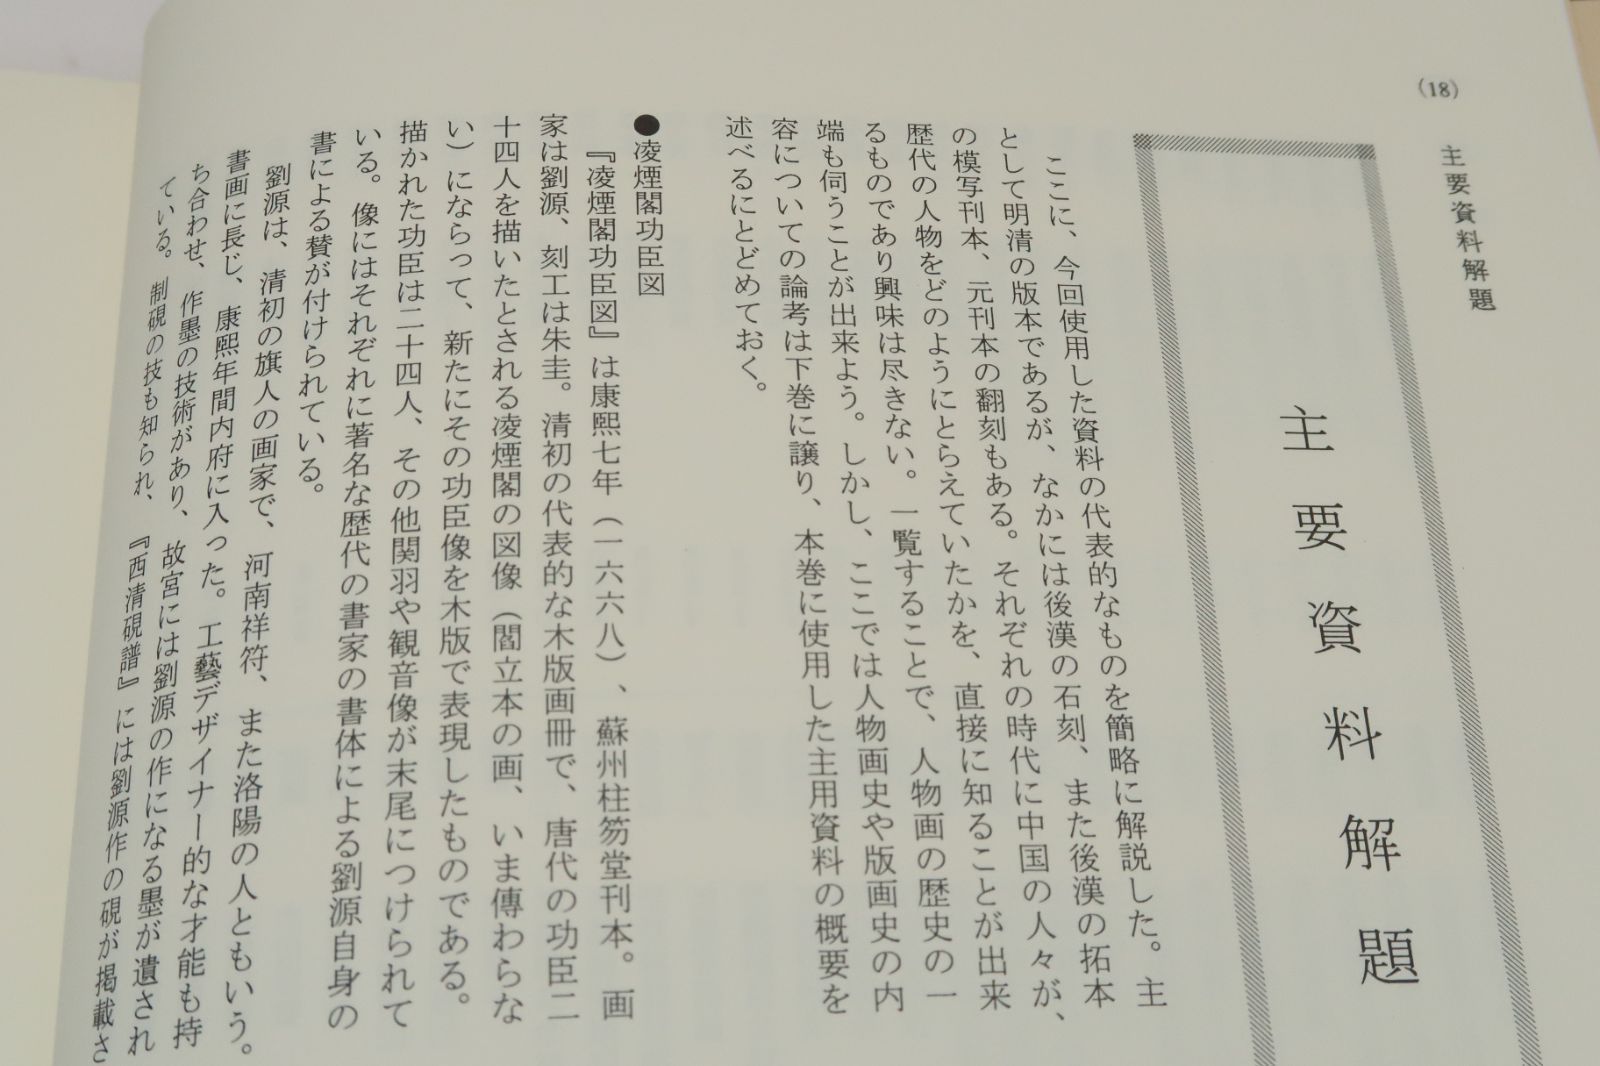 (18)
主要資料解題
主要資料解題
ここに、今回使用した資料の代表的なものを簡略に解説した。主
として明清の版本であるが、なかには後漢の石刻、また後漢の拓本
の模写刊本、元刊本の翻刻もある。それぞれの時代に中国の人々が、
歴代の人物をどのようにとらえていたかを、直接に知ることが出来
るものであり興味は尽きない。一覧することで、人物画の歴史の一
端も伺うことが出来よう。しかし、ここでは人物画史や版画史の内
容についての論考は下巻に譲り、本巻に使用した主用資料の概要を
述べるにとどめておく。
●凌煙閣功臣図
『凌煙閣功臣図』は康熙七年（一六六八）、蘇州柱笏堂刊本。画
家は劉源、刻工は朱圭。清初の代表的な木版画冊で、唐代の功臣二
十四人を描いたとされる凌煙閣の図像（閻立本の画、いま傳わらな
い）にならって、新たにその功臣像を木版で表現したものである。
描かれた功臣は二十四人、その他関羽や観音像が末尾につけられて
いる。像にはそれぞれに著名な歴代の書家の書体による劉源自身の
書による賛が付けられている。
劉源は、清初の旗人の画家で、河南祥符、また洛陽の人ともいう。
書画に長じ、康熙年間内府に入った。工藝デザイナー的な才能も持
ち合わせ、作墨の技術があり、故宮には劉源の作になる墨が遺され
ている。制硯の技も知られ、『西清硯譜』には劉源作の硯が掲載さ